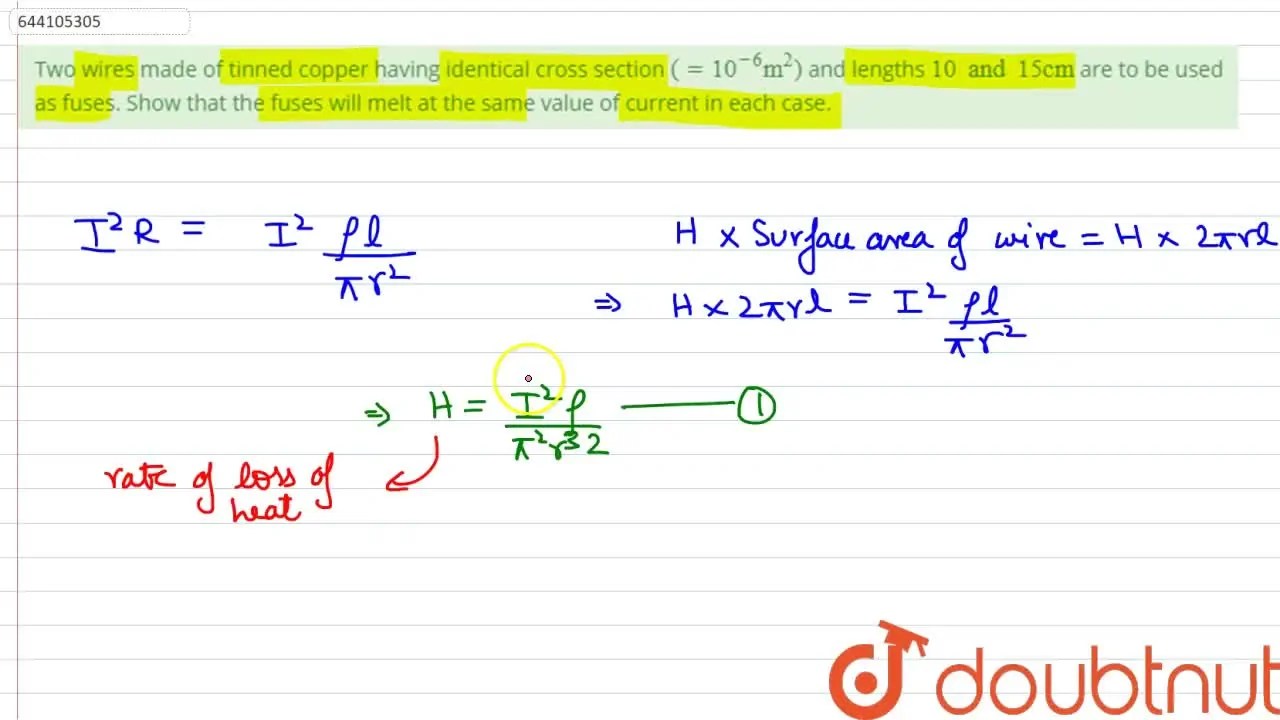 644105305
Two wires made of tinned copper having identical cross section (= 10⁻⁶m²) and lengths 10 and 15cm are to be used
as fuses. Show that the fuses will melt at the same value of current in each case.
I²R = I² ρl/πr²
H × Surface area of wire = H × 2πrl
⇒ H × 2πrl = I² ρl/πr²
⇒ H = I²ρ/π²r³2 ——— ①
rate of loss of
heat
doubtnut